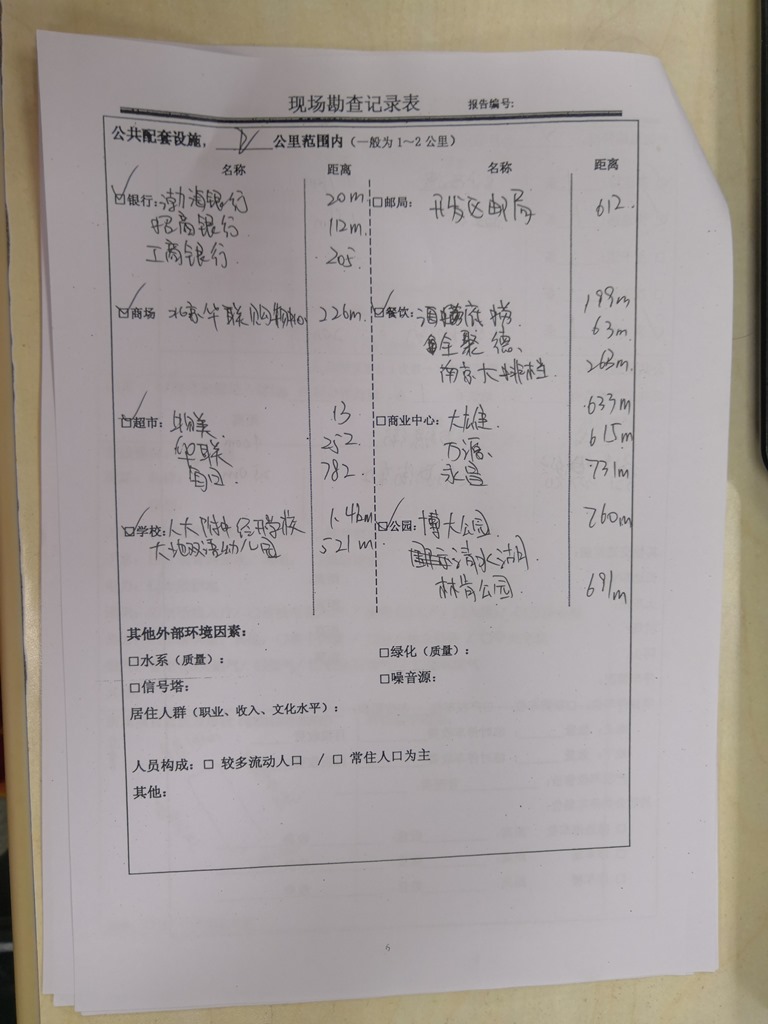 现场勘查记录表 报告编号:
公共配套设施, 公里范围内（一般为 1～2 公里）
名称 距离 名称 距离
☑银行: 渤海银行 20m
招商银行 112m
工商银行 205
□邮局: 开发区邮局 612
☑商场 北京华联购物中心 226m
☑餐饮: 199m
全聚德、 63m
南京大排档 263m
☑超市: 物美 13
华联 252
782
□商业中心: 大雄 633m
万源、 615m
永昌 731m
☑学校: 人大附中经开学校 1.4km
大地双语幼儿园 521m
☑公园: 博大公园 760m
清水湖
林肯公园 691m
其他外部环境因素:
□水系（质量）: □绿化（质量）:
□信号塔: □噪音源:
居住人群（职业、收入、文化水平）:
人员构成: □ 较多流动人口 / □ 常住人口为主
其他:
6